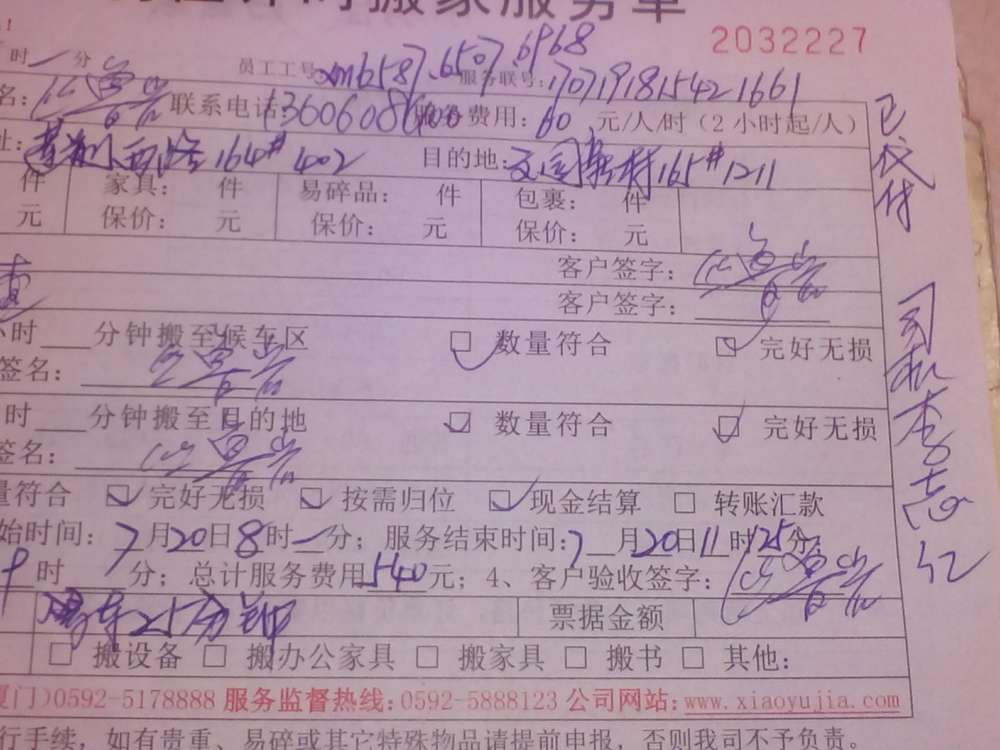 搬家服务单
2032227
时一分 员工工号:xm6587.6507.6968 服务联号:1707191815421661
名: 联系电话:13606086600 服务费用:60 元/人/时(2小时起/人)
址: 西路164#402 目的地:文园 村165#1211
件 家具: 件 易碎品: 件 包裹: 件
元 保价: 元 保价: 元 保价: 元
客户签字:
客户签字:
小时___分钟搬至候车区 数量符合 完好无损
签名:
时___分钟搬至目的地 数量符合 完好无损
签名:
量符合 完好无损 按需归位 现金结算 转账汇款
始时间:7月20日8时一分;服务结束时间:7月20日11时25分
时 分;总计服务费用540元;4、客户验收签字:
票据金额
搬设备 搬办公家具 搬家具 搬书 其他:
厦门)0592-5178888 服务监督热线:0592-5888123 公司网站:www.xiaoyujia.com
行手续,如有贵重、易碎或其它特殊物品请提前申报,否则我司不予负责。
已交付
司机李志红